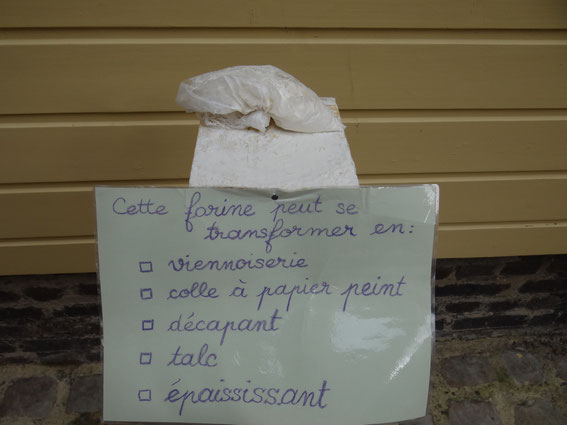 Cette farine peut se
transformer en:
□ viennoiserie
□ colle à papier peint
□ décapant
□ talc
□ épaississant